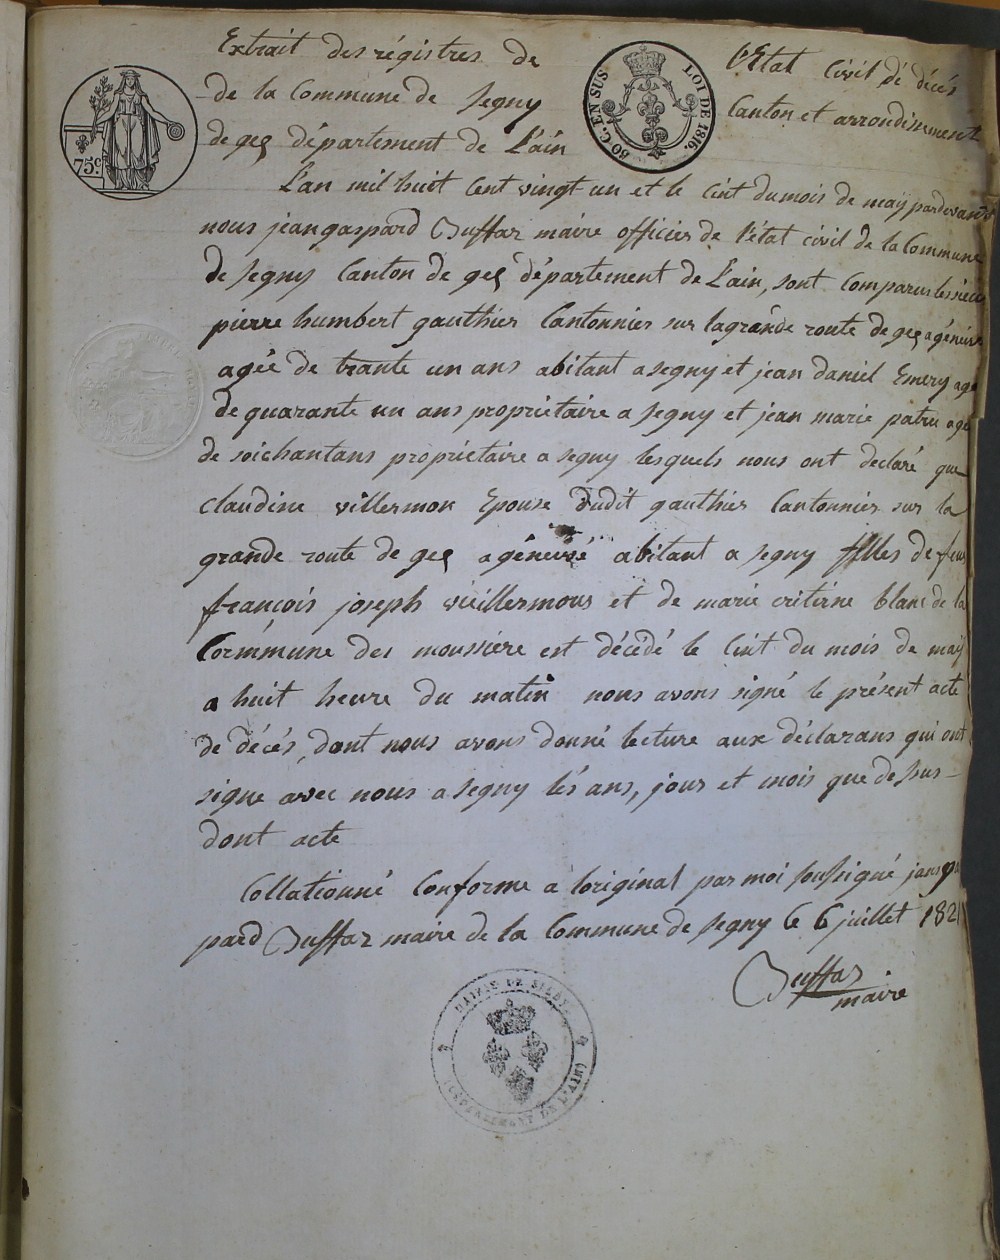 Extrait des régistres de l'Etat civil de décés
de la Commune de Segny Canton et arrondissement
de gex département de L'ain
75.c
50 C. EN SUS
LOI DE 1816.
L'an mil huit cent vingt-un et le cint du mois de maÿ pardevant
nous jean gaspard Buffaz maire officier de l'état civil de la Commune
de Segny Canton de gex département de L'ain, sont comparus
pierre humbert gauthier Cantonnier sur la grande route de gex a géneve
agée de trante un ans abitant a segny et jean daniel Emery age
de quarante un ans proprietaire a segny et jean marie patru age
de soichantans proprietaire a segny lesquels nous ont declaré que
claudine villermon Epouse dudit gauthier Cantonnier sur la
grande route de gex a géneve abitant a segny filles de feux
françois joseph vieillermous et de marie blanc de la
Commune des moussiere est décédé le cint du mois de maÿ
a huit heure du matin nous avons signé le présent acte
de décés, dont nous avons donné lecture aux déclarans qui ont
signe avec nous a segny lés ans, jour et mois que dessus -
dont acte
Collationné Conforme a loriginal par moi soussigné jansga
pard Buffaz maire de la Commune de Segny le 6 juillet 1821
Buffaz
maire
MAIRIE DE SEGNY
DEPARTEMENT DE L'AIN